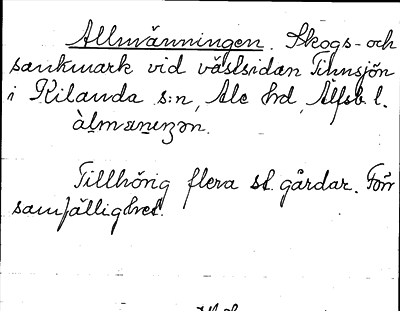 Allmänningen. Skogs- och
sankmark vid västsidan Tinnsjön
i Kilanda s:n, Ale hd, Älfsb. l.
Tillhörig flera st. gårdar. Förr
samfällighet.